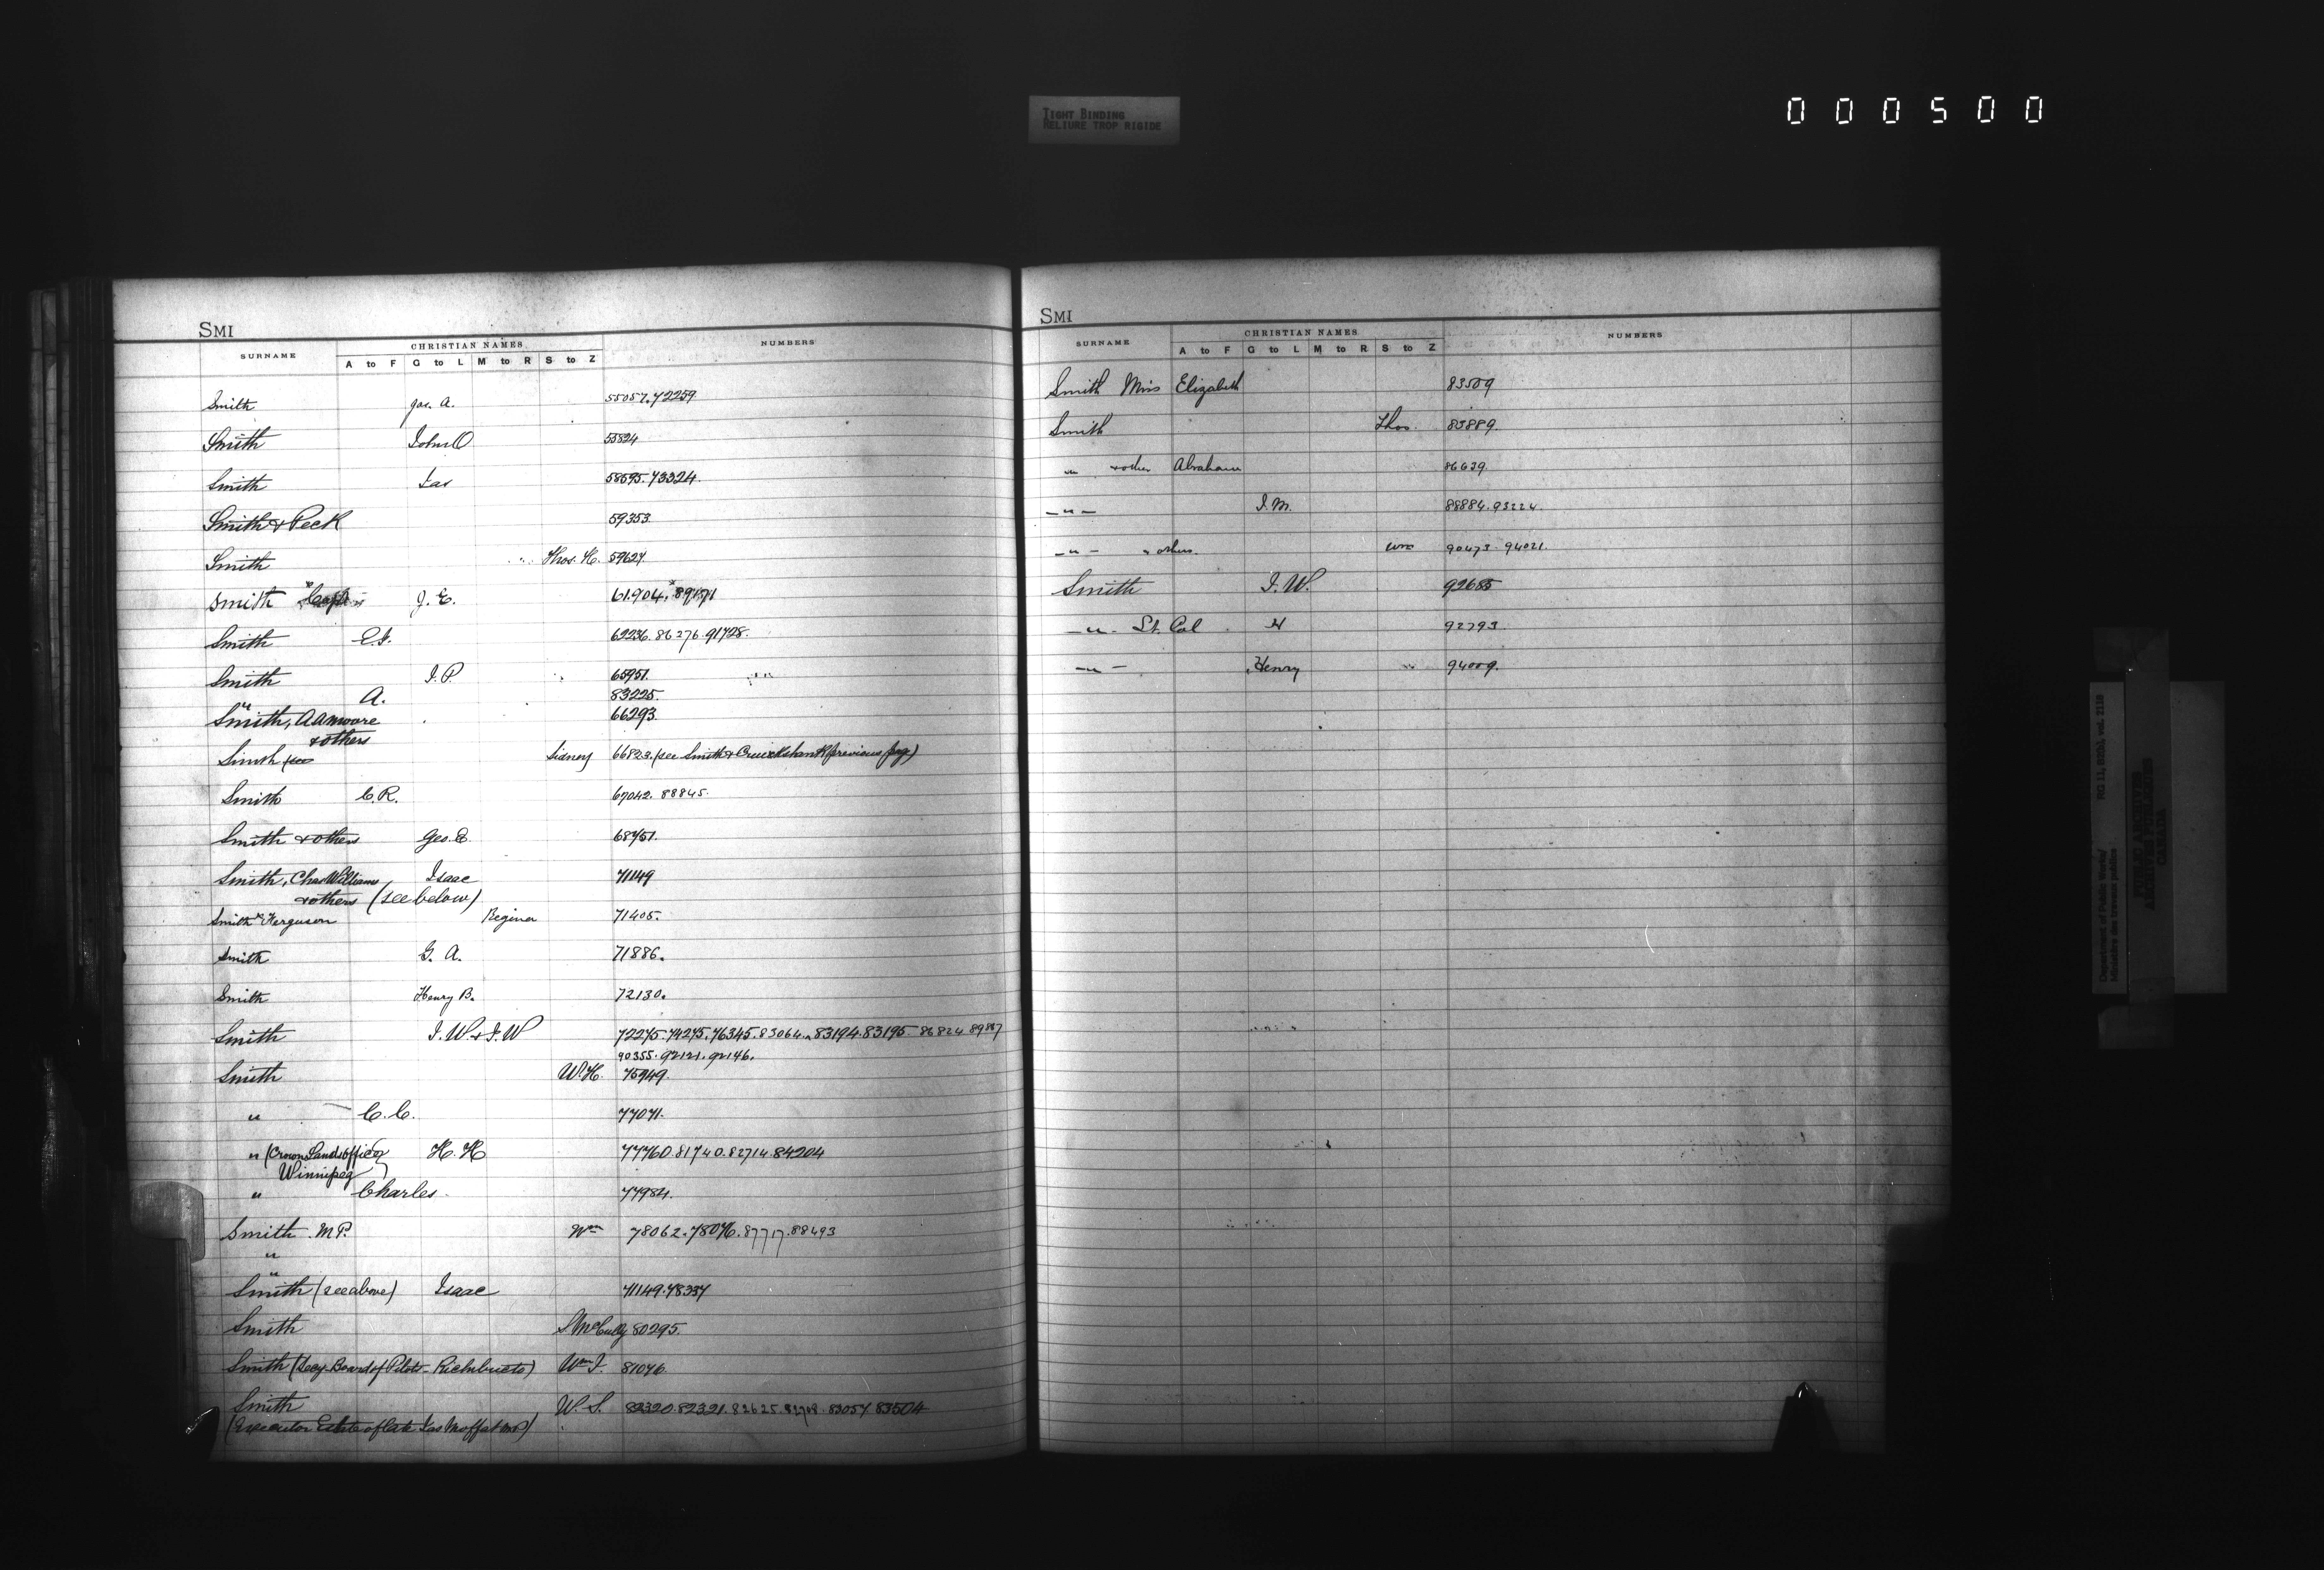 TIGHT BINDING
RELIURE TROP RIGIDE
000500
SMI
SURNAME CHRISTIAN NAMES NUMBERS
A to F G to L M to R S to Z
Smith Jas. A. 55057.72259
Smith John O 55824
Smith Jas 58595.73324.
Smith & Peck 59353
Smith Thos. H. 59627.
Smith J. E. 61.904.
Smith E.F. 62236.86276.91728.
Smith J.P. 65951.
" A. 83225.
Smith, A A Moore 66293.
& others
Smith (see Sidney 66823. (see Smith & Cruickshank previous pag)
Smith C.R. 67042. 88845.
Smith & others Geo. E. 68751.
Smith, Chas Williams Isaac 71149
& others (see below)
Smith & Ferguson Regina 71405.
Smith G. A. 71886.
Smith Henry B. 72130.
Smith J.W. & J.W 72275.74275.76345.83064.83194.83195.86824 89887
90355.92121.92146.
Smith W.H. 75949.
" C.C. 77071.
" (Crown Lands officer H.H 77760.81740.82714.84204
Winnipeg
" Charles. 77984.
Smith M.P. Wm 78062.78076.87717.88493
"
"
Smith (see above) Isaac 71149.78337
Smith S McCully 80295.
Smith (Secy-Board of Pilots-Richibucto) Wm J. 81076
Smith W. S. 82320.82321.82625.82708.83057 83504
(Executor Estate of late Jas Moffat MP)
SMI
SURNAME CHRISTIAN NAMES NUMBERS
A to F G to L M to R S to Z
Smith Miss Elizabeth 83509
Smith Thos. 85889.
" & other Abraham 86639.
-"- J.M. 88884.93224.
-"- & others. Wm 90473. 94021.
Smith J.W. 92685
-"- Lt. Col H 92793.
-"- Henry 94009.
Department of Public Works/
Ministère des travaux publics
RG 11, B2(b), vol. 2118
PUBLIC ARCHIVES
ARCHIVES PUBLIQUES
CANADA